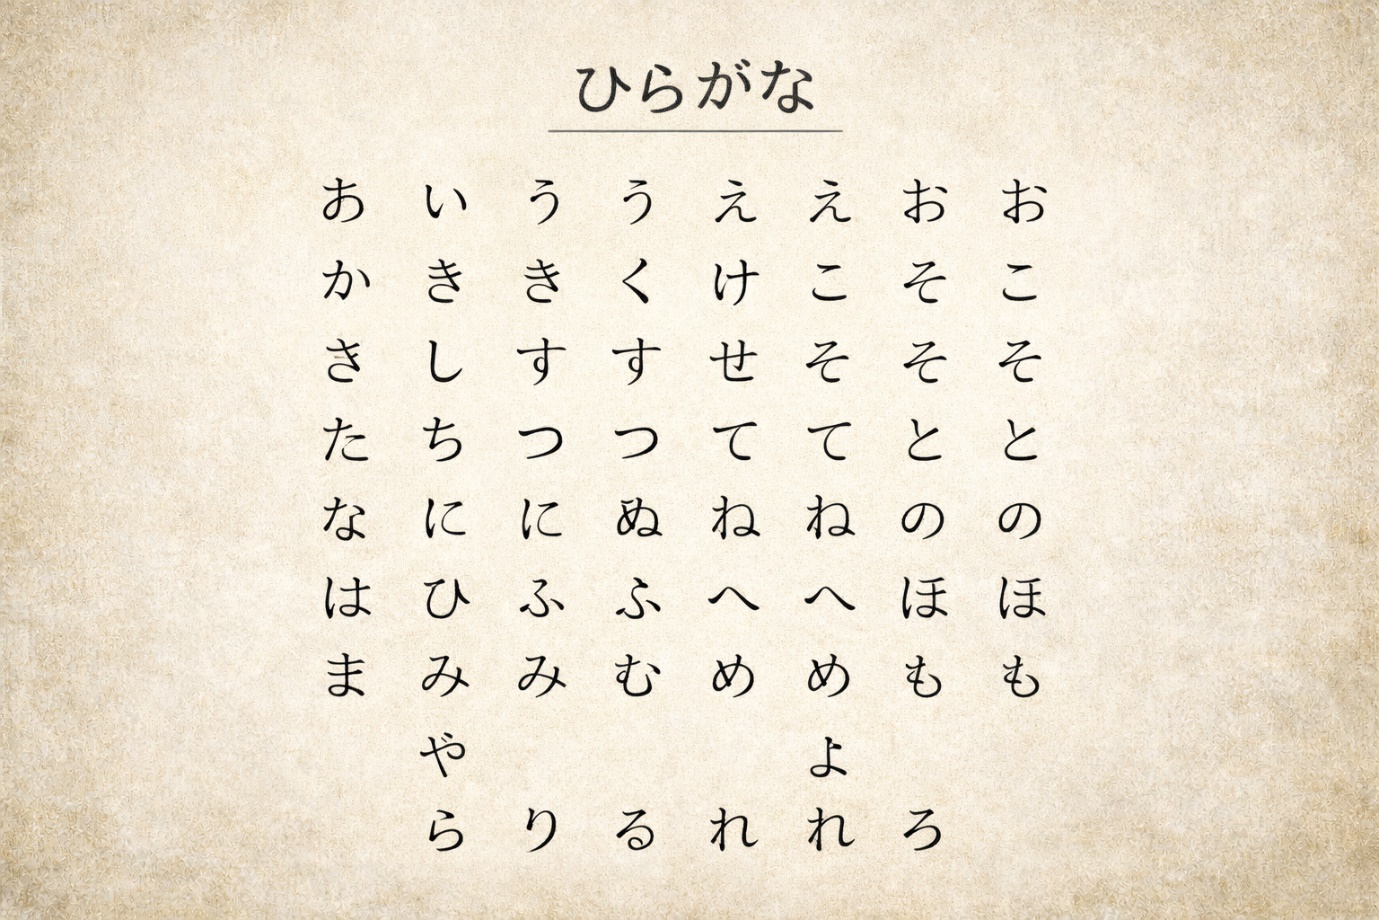 ひらがな
あ い う う え え お お
か き き く け こ そ こ
さ し す す せ そ そ そ
た ち つ つ て て と と
な に に ぬ ね ね の の
は ひ ふ ふ へ へ ほ ほ
ま み み む め め も も
や よ
ら り る れ れ ろ